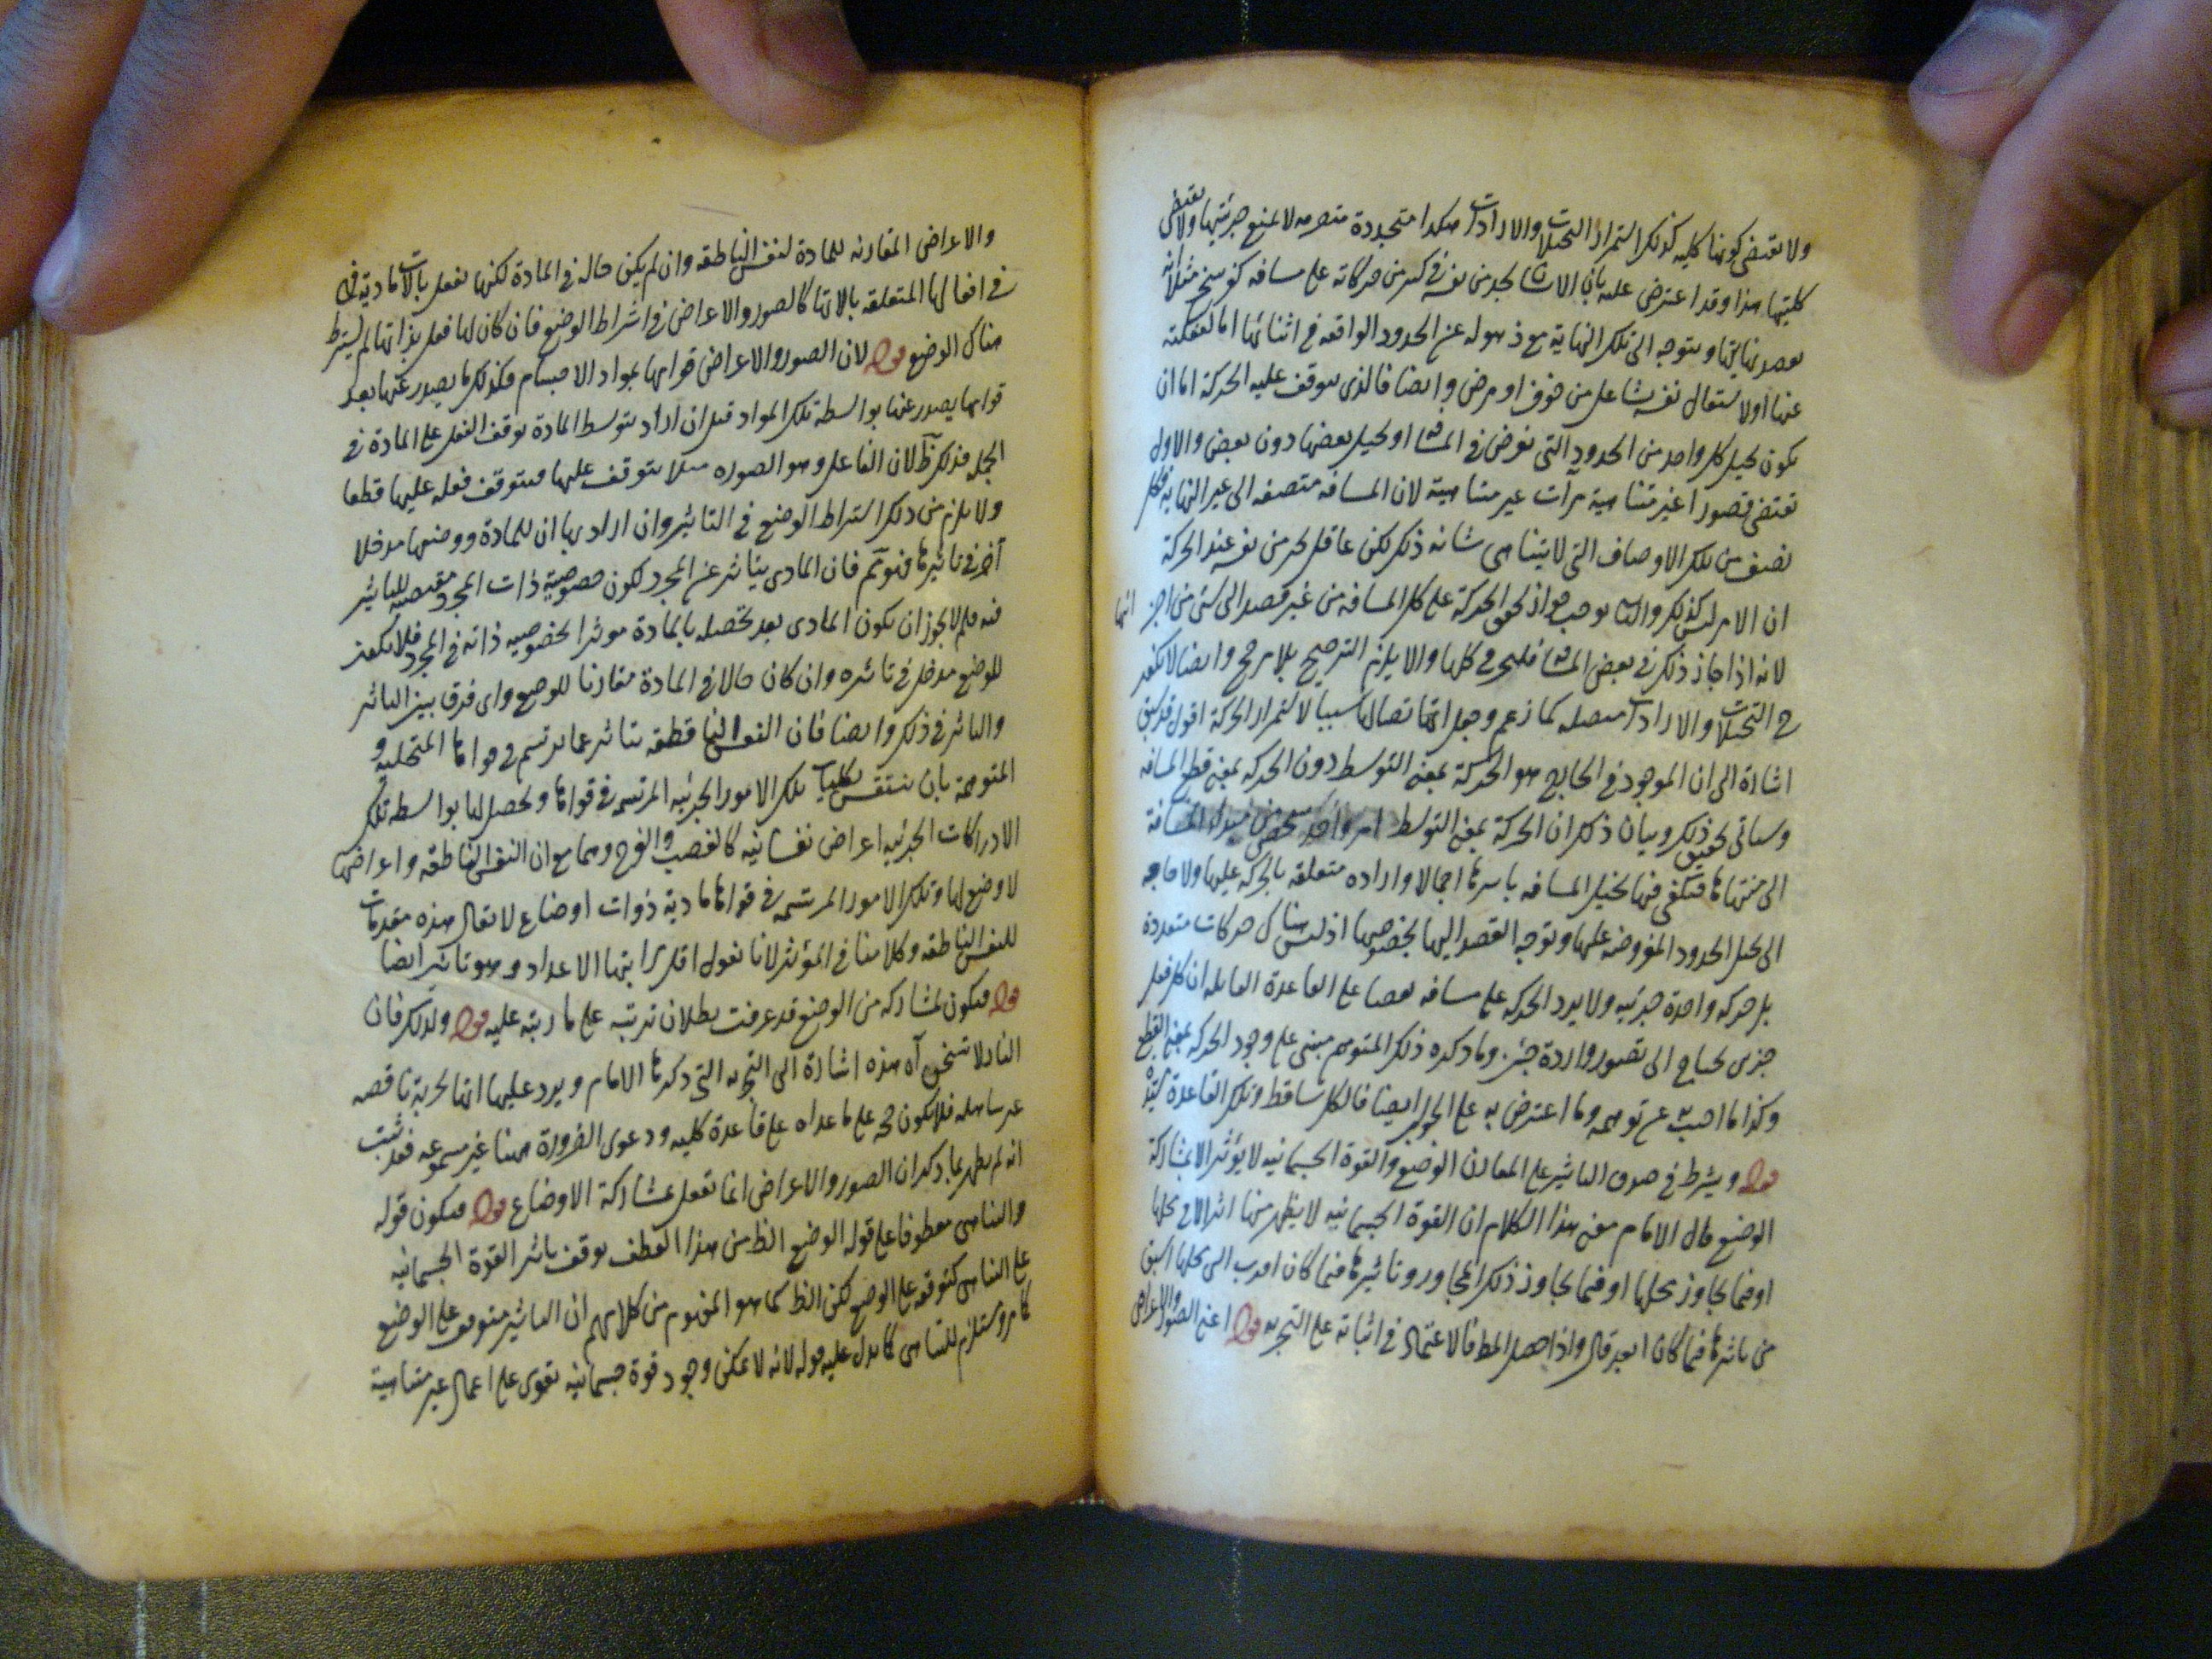 ولا يقتضى كونها كليه كذلك استمرار التخيلات والارادات هكذا متجددة متصرمه لا يمنع جزئيتها ولا يقتضى
كليتها هذا وقد اعترض عليه بان الانسان يجد من نفسه في كثير من حركاته على مسافه كفرسخ مثلا انه
يقصد نهايتها ويتوجه الى تلك النهاية مع ذهوله عن الحدود الواقعه في اثنائها اما لغفلته
عنها او لاشتغال نفسه بشاغل من خوف او مرض وايضا فالذى يتوقف عليه الحركة اما ان
يكون تخيل كل واحد من الحدود التى تفرض في المسافة او تخيل بعضها دون بعض والاول
يقتضى قصورا غير متناهية مرات غير متناهية لان المسافه متصفه الى غير النهايه فكل
نصف من تلك الاوصاف التى لا يتناهى شانه ذلك لكن عاقل يجد من نفسه عند الحركة
ان الامر ليس كذلك والثانى يوجب جواز تحقق الحركة على كل المسافه من غير قصد الى شئ من اجزائها
لانه اذا جاز ذلك في بعض المسافة فليجز في كلها والا يلزم الترجيح بلا مرجح وايضا لا يكون
ح التخيلات والارادات متصله كما زعم وجعل اتصالها سببا لاستمرار الحركة اقول قد سبق
اشارة الى ان الموجود في الخارج هو الحركة بمعنى التوسط دون الحركه بمعنى قطع المسافه
وسياتى تحقيق ذلك وبيان ذلك ان الحركة بمعنى التوسط امر واحد شخصى من مبدأ المسافة
الى منتهاها فيكفى فيها تخيل المسافه باسرها اجمالا واراده متعلقه بالحركه عليها ولا حاجه
الى تخيل الحدود المفروضه عليها وتوجه القصد اليها بخصوصها اذ ليس هناك حركات متعددة
بل حركه واحدة جزئيه ولا يرد الحركه على مسافه نقضا على القاعدة القايله ان كل فعل
جزئى يحتاج الى تصور وارادة جزئى وما ذكره ذلك المتوهم مبنى على وجود الحركه بمعنى القطع
وكذا ما اجيب عن توهمه وما اعترض به على الجواب ايضا فالكل ساقط وتلك القاعدة
قوله ويشرط في صدق التاثير على المقارن الوضع والقوة الجسمانيه لا يؤثر الا بمشاركة
الوضع قال الامام معنى هذا الكلام ان القوة الجسمانيه لا يظهر منها اثر الا في محلها
او فيما يجاوز محلها او فيما يجاوز ذلك المجاور وتاثيرها فيما كان اقرب الى محلها اسبق
من تاثيرها فيما كان ابعد قال واذا حصل المط فالاعتماد في اثباته على التجربه قوله اعنى الصور والاعراض
والاعراض المقارنه للمادة لنفس الناطقه وان لم يكن حاله في المادة لكنها تفعل بالات مادية فهى
في افعالها المتعلقه بالاتها كالصور والاعراض في اشتراط الوضع فان كان لها فعل بذاتها لم يشترط
هناك الوضع قوله لان الصور والاعراض قوامها بمواد الاجسام فكذلك ما يصدر عنها بعد
قوامها يصدر عنها بواسطه تلك المواد قيل ان اراد بتوسط المادة توقف الفعل على المادة في
الجمله فذلك ظ لان الفاعل وهو الصوره مثلا يتوقف عليها فيتوقف فعله عليها قطعا
ولا يلزم من ذلك اشتراط الوضع في التاثير وان اراد بها ان للمادة ووضعها مدخلا
آخر في تاثيرها فهو مم فان المادى يتاثر عن المجرد لكون خصوصية ذات المجرد مقتضيه للتاثير
فيه فلم لا يجوز ان يكون المادى بعد تحصله بالمادة موثرا لخصوصيه ذاته في المجرد فلا يكون
للوضع مدخل في تاثيره وان كان حالا في المادة مقارنا للوضع واى فرق بين التاثير
والتاثر في ذلك وايضا فان النفس الناطقه يتاثر عما يرتسم في قواها المتخليه و
المتوهمة بان ينتقش بكليات تلك الامور الجزئيه المرتسمه في قواها ويحصل لها بواسطه تلك
الادراكات الجزئيه اعراض نفسانيه كالغضب والفرح وهما مع ان النفس الناطقه واعراضها
لا وضع لها وتلك الامور المرتسمه في قواها مادية ذوات اوضاع لا يقال هذه مقدمات
للنفس الناطقه وكلامنا في المؤثر لانا نقول اقل مراتبها الاعداد وهو تاثير ايضا
قوله فيكون بمشاركه من الوضع قد عرفت بطلان ترتبه على ما رتبه عليه قوله ولذلك فان
النار لا تسخن آه هذه اشارة الى التجربه التى ذكرها الامام ويرد عليها انها تجربة ناقصه
غير شامله فلا يكون حجه على ما عداه على قاعدة كليه ودعوى الضرورة ههنا غير مسموعه فقد ثبت
انه لم يظهر مما ذكر ان الصور والاعراض انما تفعل بمشاركة الاوضاع قوله فيكون قوله
والتناهى معطوفا على قوله الوضع الظ من هذا العطف توقف تاثير القوة الجسمانيه
على التناهى كتوقفه على الوضع لكن الظ كما هو المفهوم من كلامهم ان التاثير متوقف على الوضع
كما مر ومستلزم للتناهى كما يدل عليه قوله لانه لا يمكن وجود قوة جسمانيه تقوى على اعمال غير متناهية